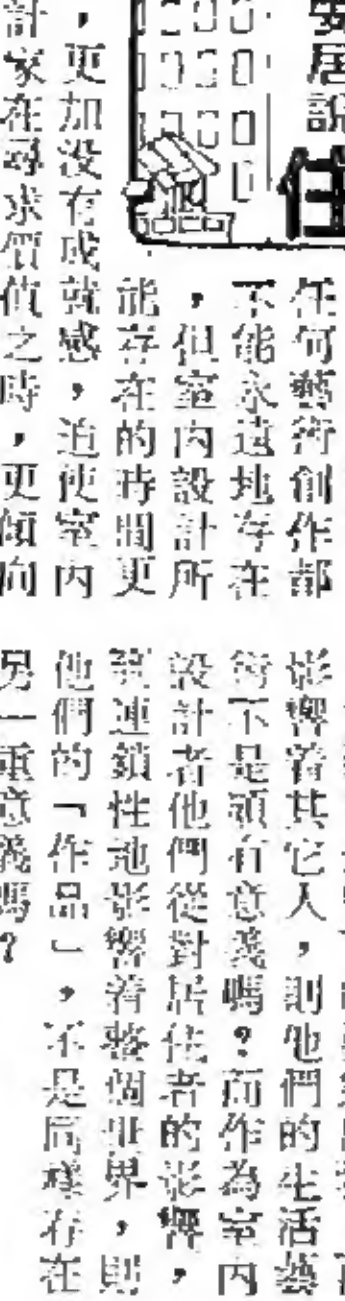 安居說
住
任何藝術創作都
不能永遠地存在
，但室內設計所
能存在的時間更
，更加沒有成就感，迫使室內
計家在尋求價值之時，更傾向
影響着其它人，則他們的生活藝
術不是頭有意義嗎？而作為室內
設計者他們從對居住者的影響，
連鎖性地影響着整個世界，則
他們的「作品」，不是同樣存在
另一重意義嗎？